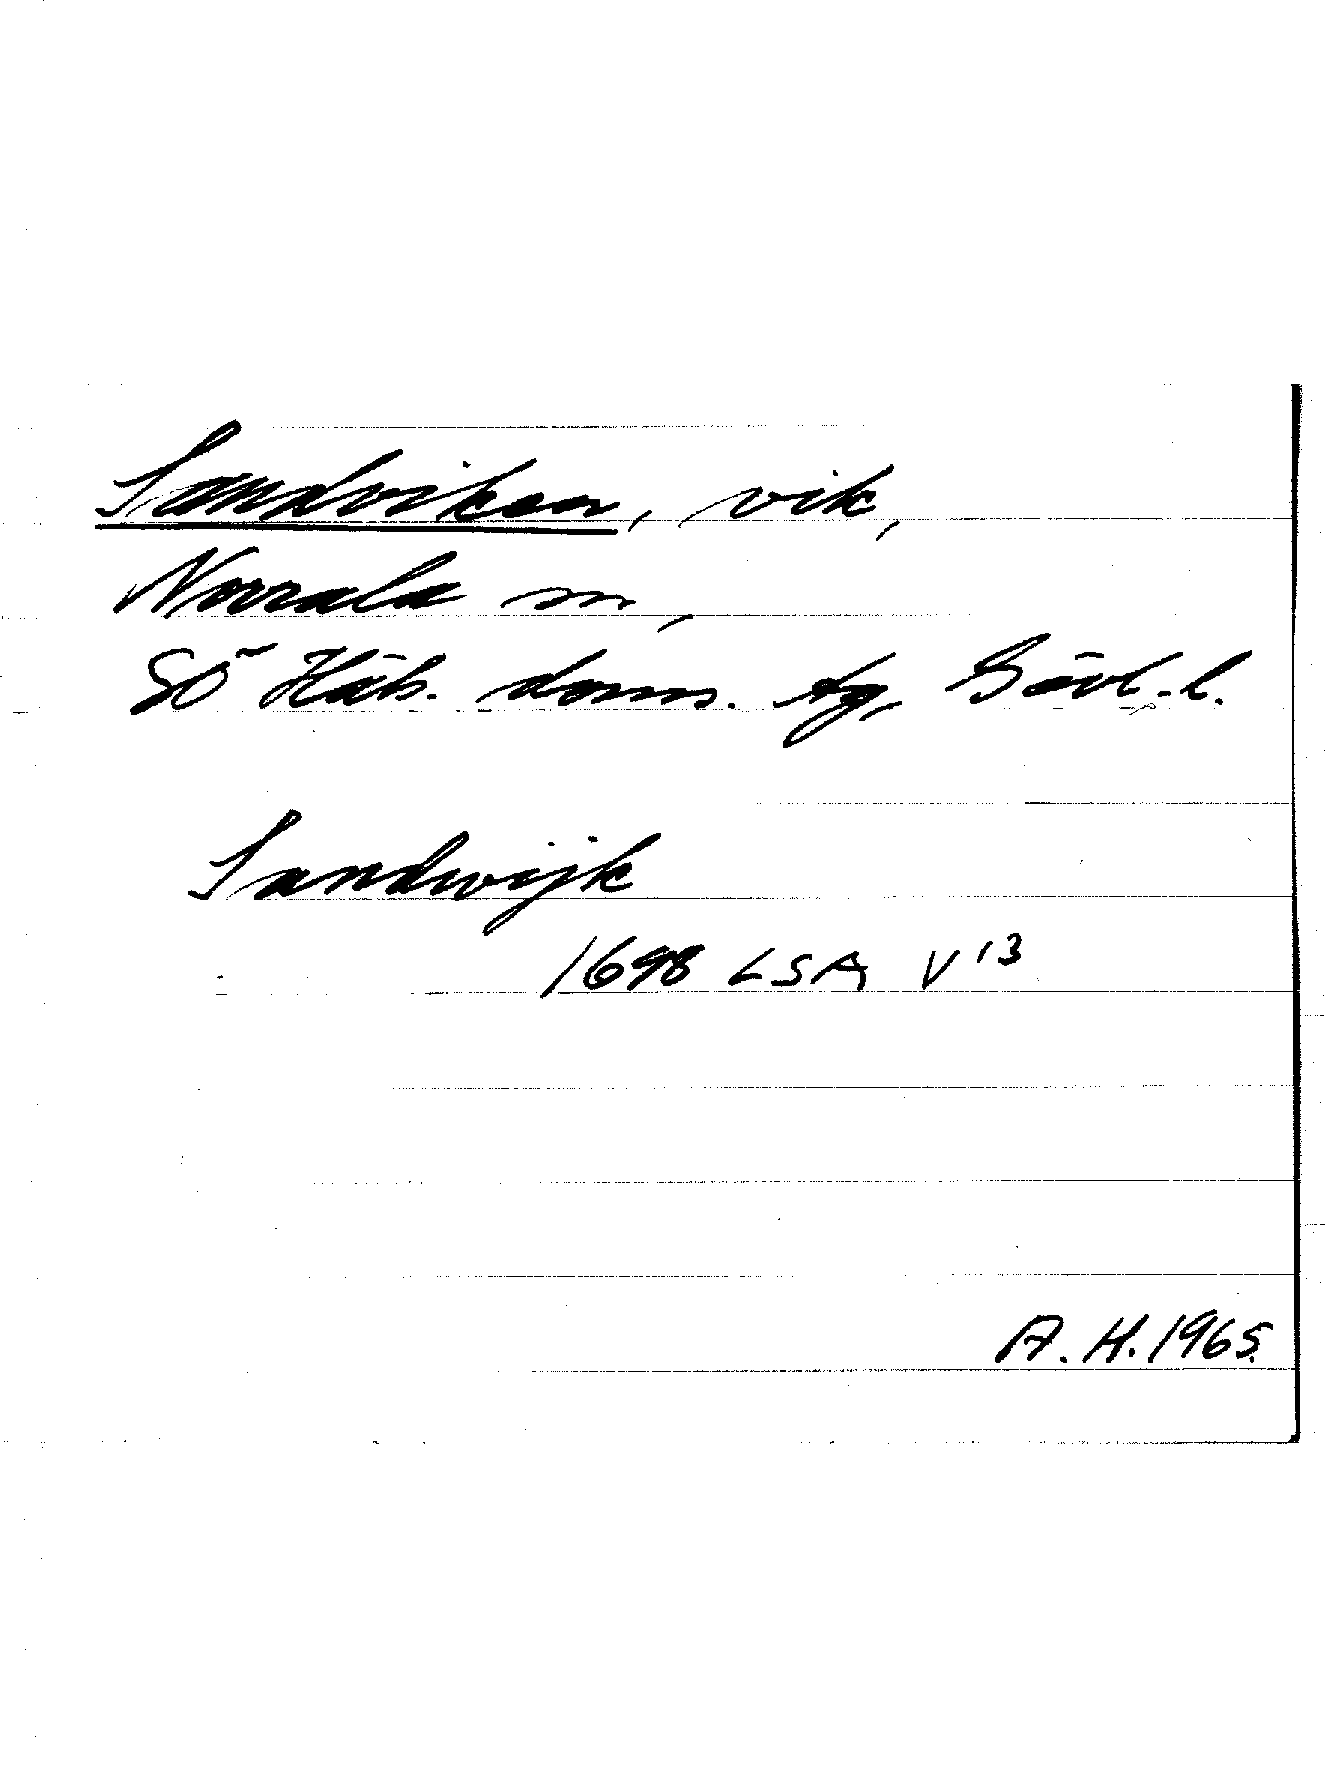 Sandviken, vik,
Norrala sn,
SÖ Häls. doms. tg, Gävl. l.
Sandwijk
1698 LSA V 13
A. H. 1965.